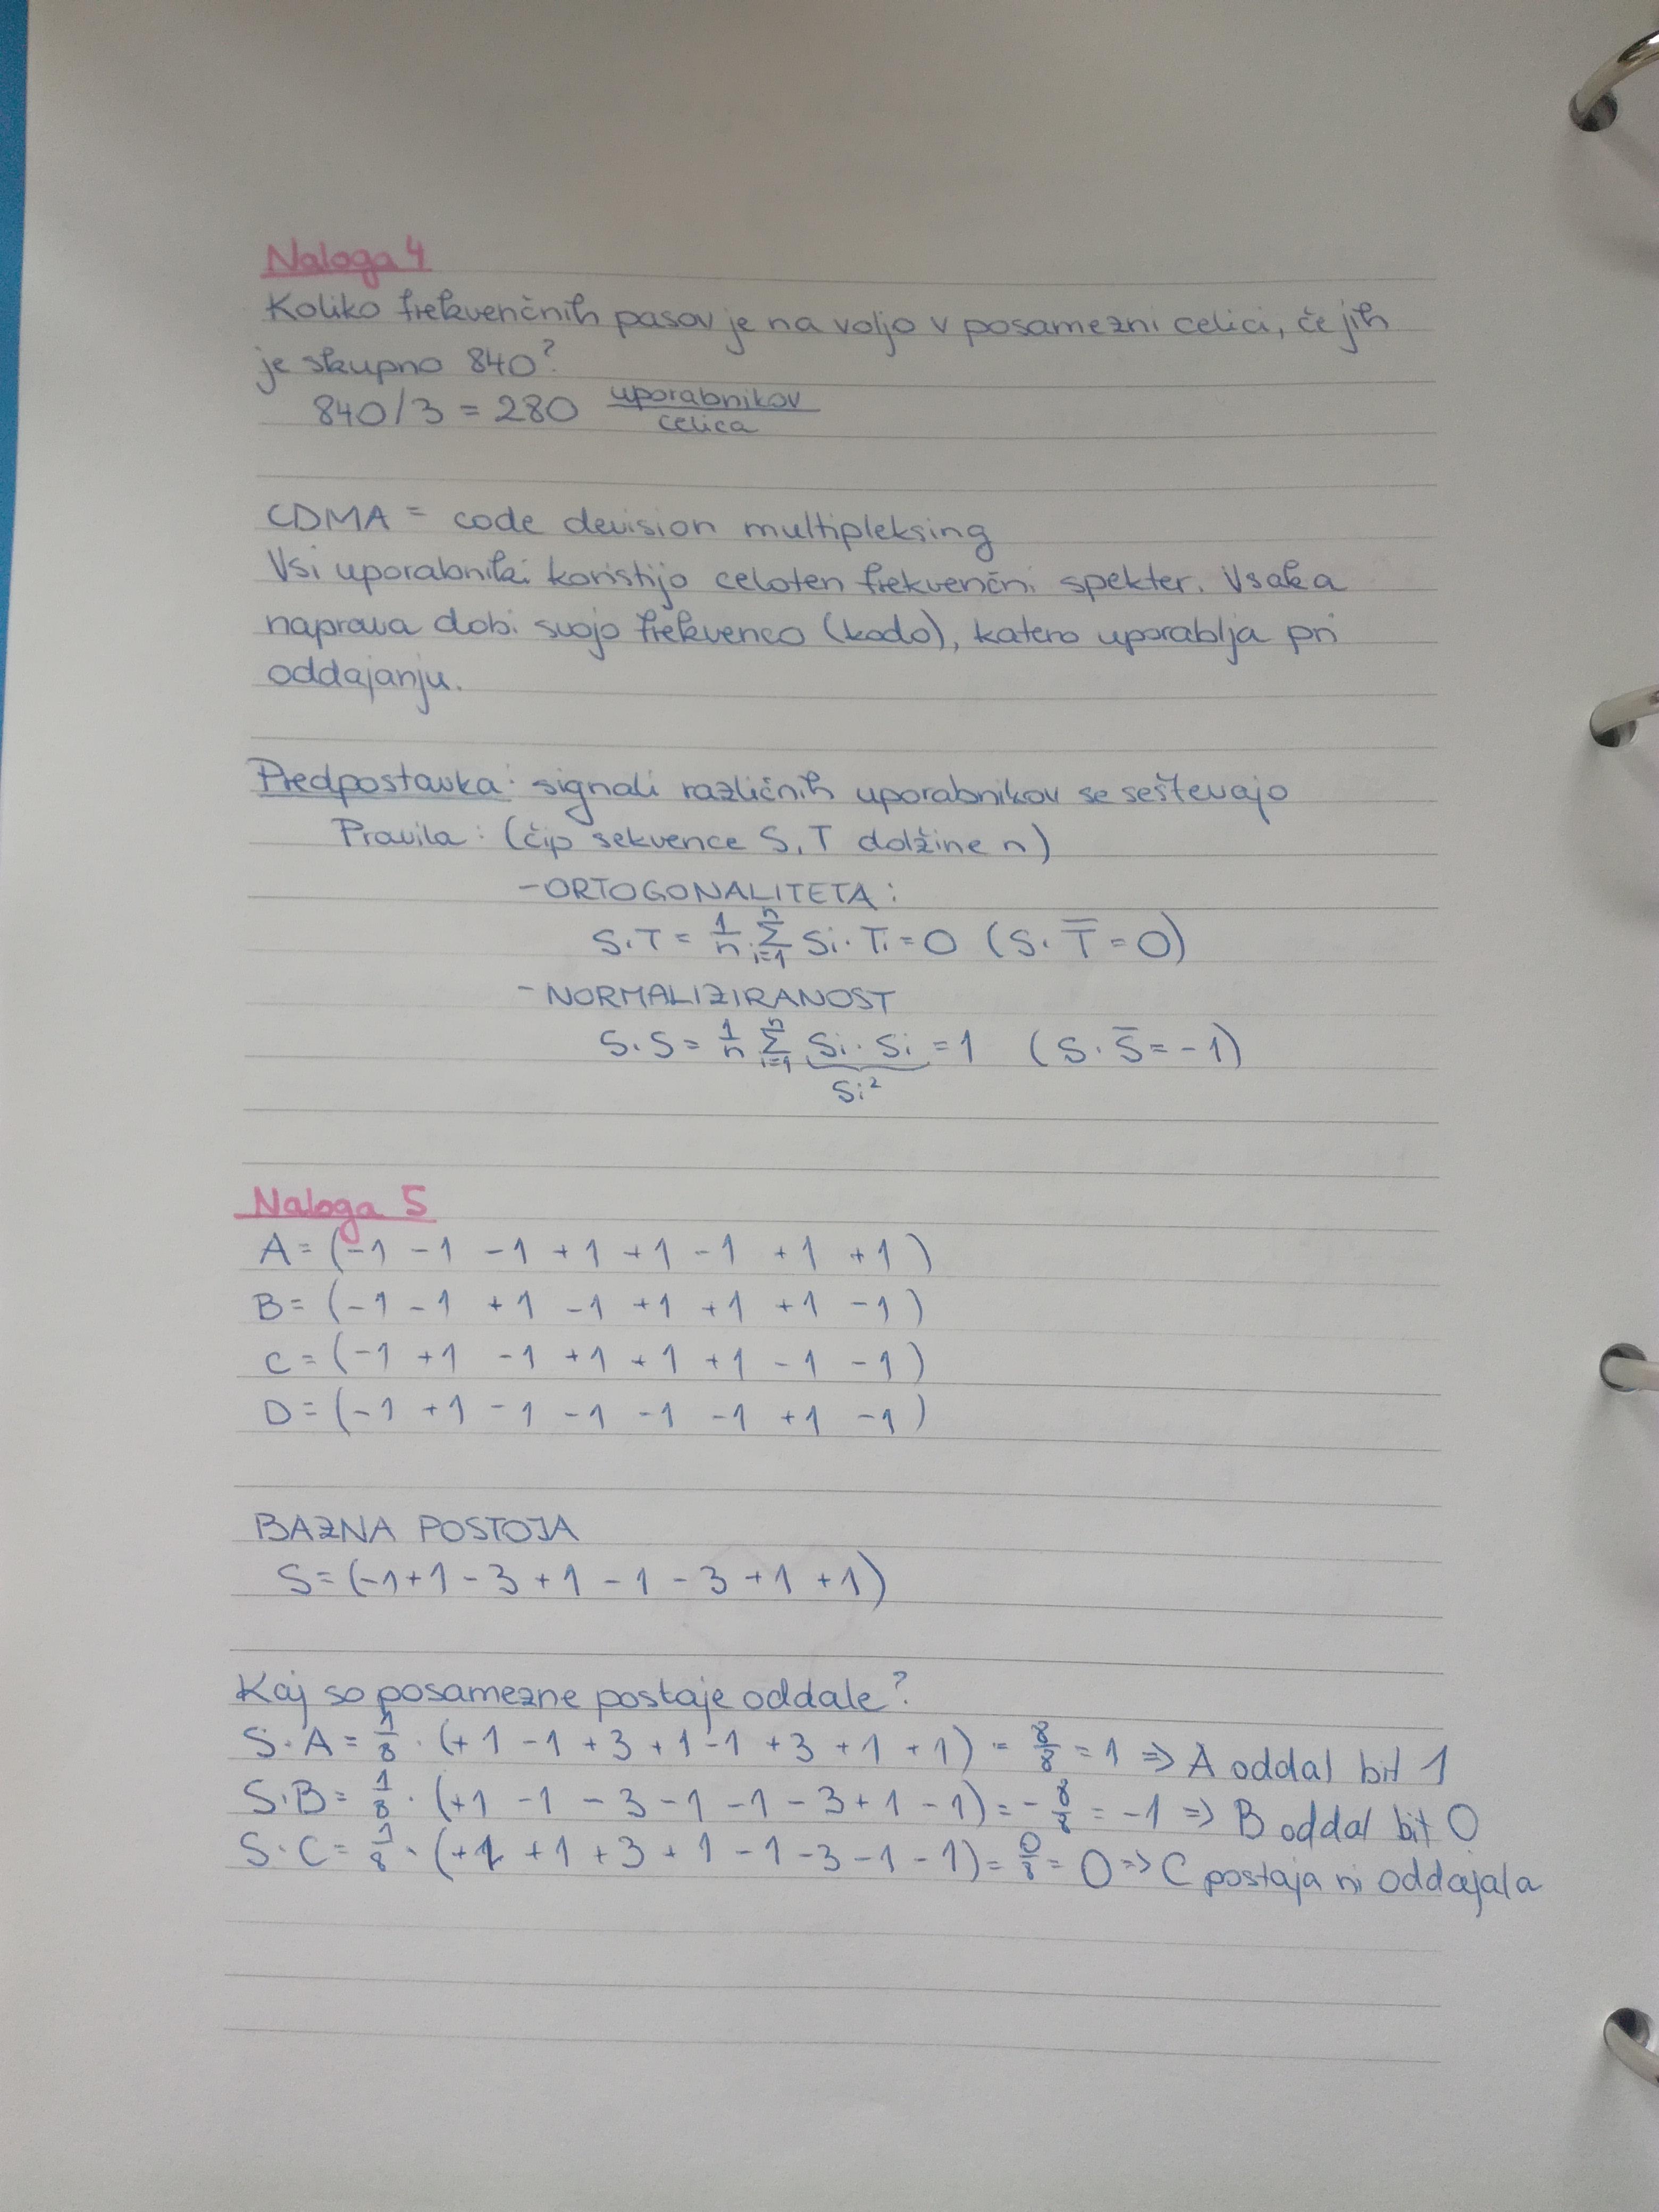 Naloga 4
Koliko frekvenčnih pasov je na voljo v posamezni celici, če jih
je skupno 840?
840/3 = 280 uporabnikov/celica
CDMA = code devision multipleksing
Vsi uporabniki koristijo celoten frekvenčni spekter. Vsaka
naprava dobi svojo frekvenco (kodo), katero uporablja pri
oddajanju.
Predpostavka: signali različnih uporabnikov se seštevajo
Pravila: (čip sekvence S, T dolžine n)
- ORTOGONALITETA:
S·T = 1/n Σ_{i=1}^{n} Si · Ti = 0 (S · T̅ = 0)
- NORMALIZIRANOST
S·S = 1/n Σ_{i=1}^{n} Si · Si = 1 (S · S̅ = -1)
Si²
Naloga 5
A = (-1 -1 -1 +1 +1 -1 +1 +1)
B = (-1 -1 +1 -1 +1 +1 +1 -1)
C = (-1 +1 -1 +1 +1 +1 -1 -1)
D = (-1 +1 -1 -1 -1 -1 +1 -1)
BAZNA POSTOJA
S = (-1 +1 -3 +1 -1 -3 +1 +1)
Kaj so posamezne postaje oddale?
S·A = 1/8 · (+1 -1 +3 +1 -1 +3 +1 +1) = 8/8 = 1 => A oddal bit 1
S·B = 1/8 · (+1 -1 -3 -1 -1 -3 +1 -1) = -8/8 = -1 => B oddal bit 0
S·C = 1/8 · (+1 +1 +3 +1 -1 -3 -1 -1) = 0/8 = 0 => C postaja ni oddajala